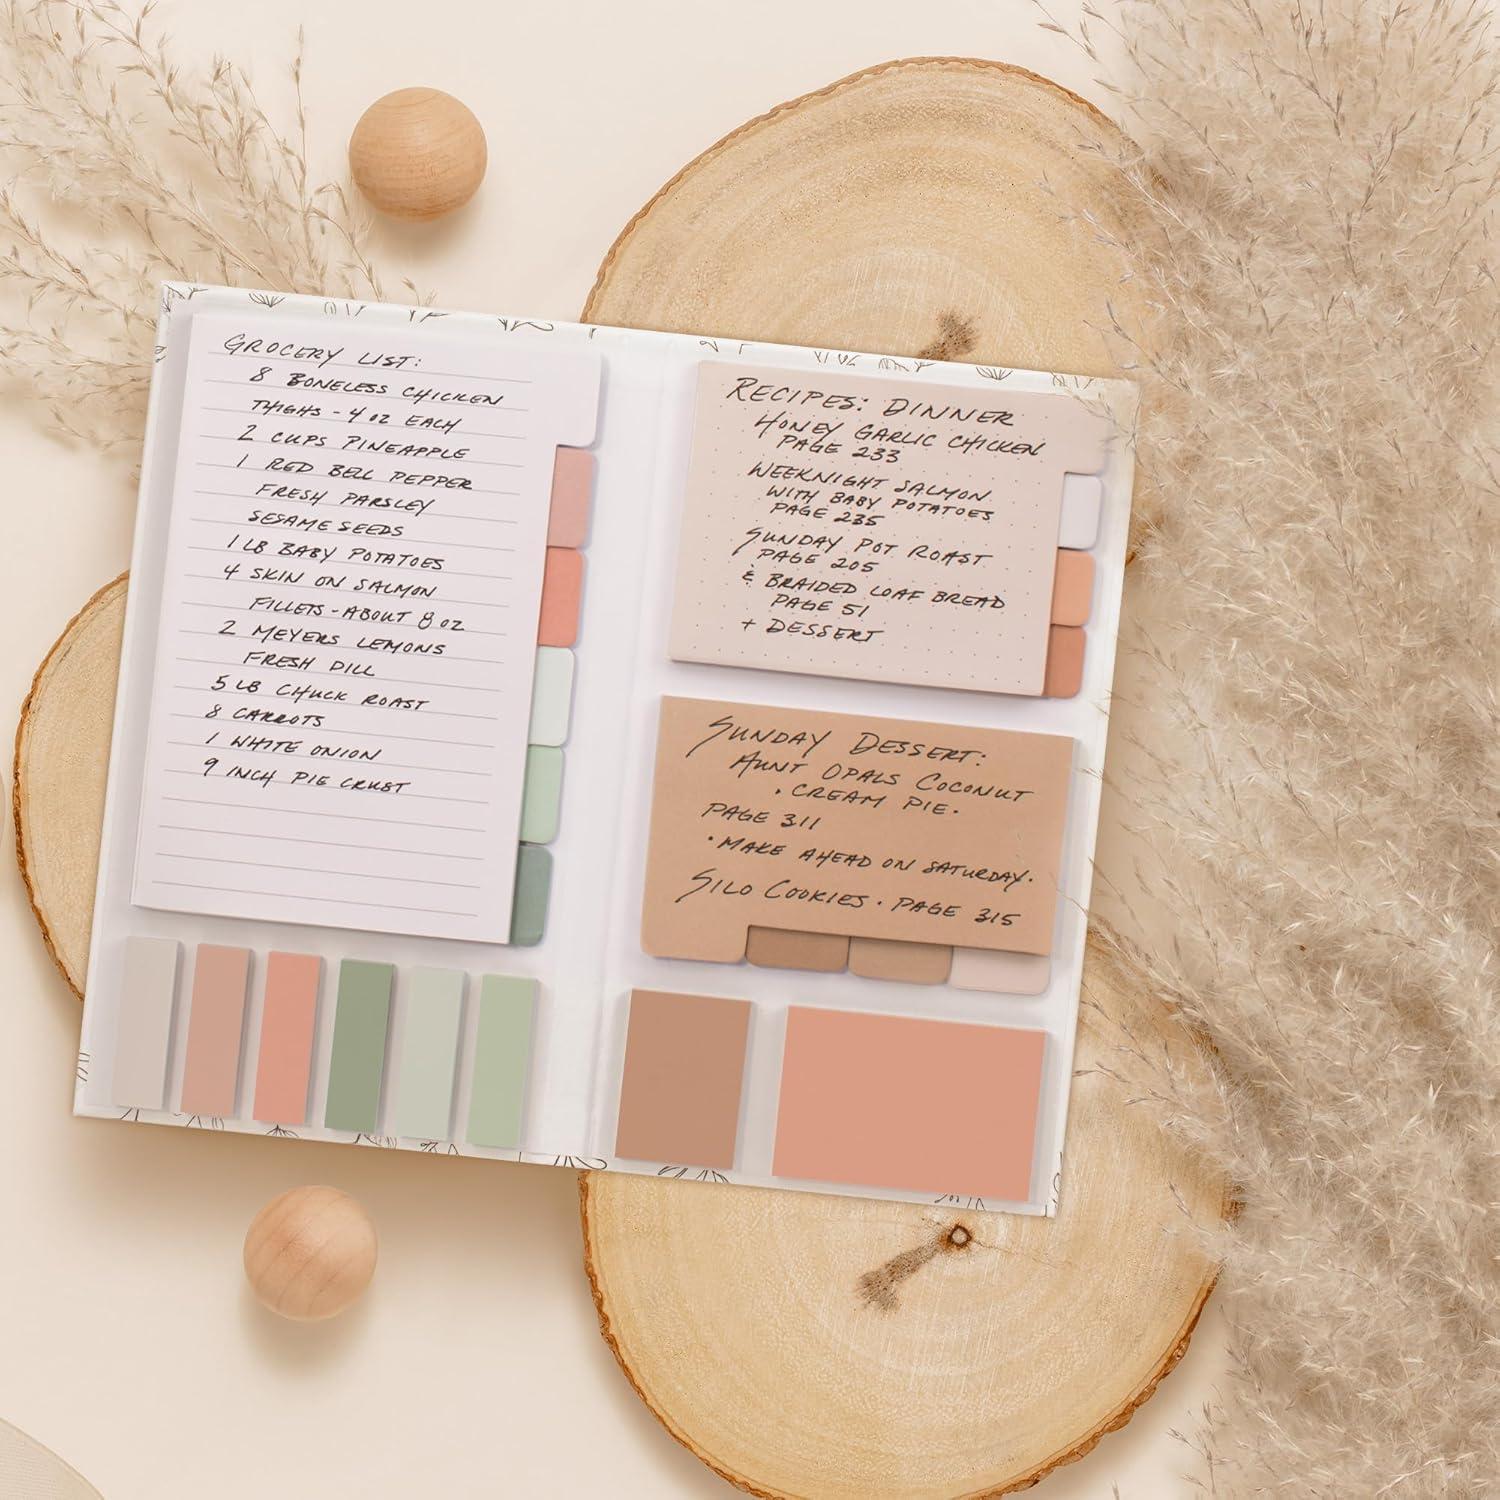 GROCERY LIST:
8 BONELESS CHICKEN
THIGHS - 4 OZ EACH
2 CUPS PINEAPPLE
1 RED BELL PEPPER
FRESH PARSLEY
SESAME SEEDS
1 LB BABY POTATOES
4 SKIN ON SALMON
FILLETS - ABOUT 8 OZ
2 MEYERS LEMONS
FRESH DILL
5 LB CHUCK ROAST
8 CARROTS
1 WHITE ONION
9 INCH PIE CRUST
RECIPES: DINNER
HONEY GARLIC CHICKEN
PAGE 233
WEEKNIGHT SALMON
WITH BABY POTATOES
PAGE 235
SUNDAY POT ROAST
PAGE 205
& BRAIDED LOAF BREAD
PAGE 51
+ DESSERT
SUNDAY DESSERT:
AUNT OPALS COCONUT
• CREAM PIE •
PAGE 311
• MAKE AHEAD ON SATURDAY •
SILO COOKIES • PAGE 315